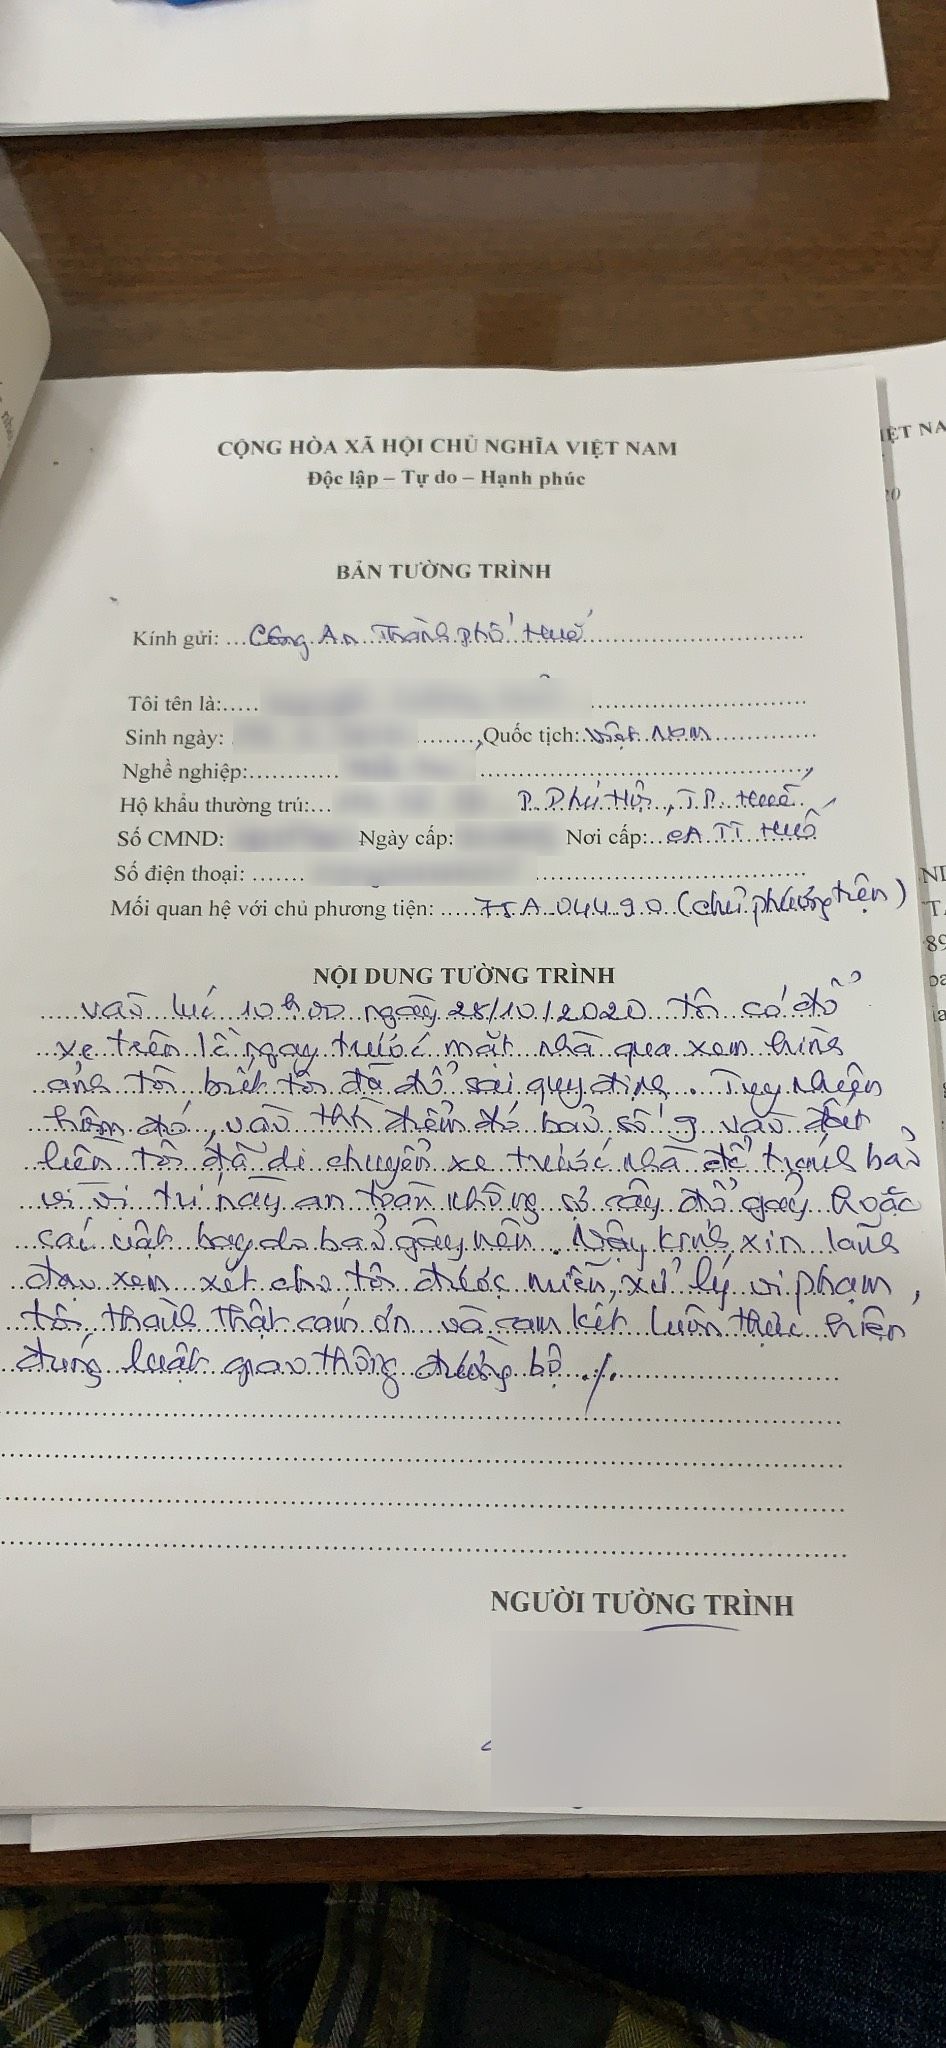 CỘNG HÒA XÃ HỘI CHỦ NGHĨA VIỆT NAM
Độc lập – Tự do – Hạnh phúc
BẢN TƯỜNG TRÌNH
Kính gửi: Công An Thành phố Huế
Tôi tên là:
Sinh ngày: , Quốc tịch: Việt Nam
Nghề nghiệp:
Hộ khẩu thường trú: P. Phú Hội, T.P. Huế
Số CMND: Ngày cấp: Nơi cấp: CA TT Huế
Số điện thoại:
Mối quan hệ với chủ phương tiện: 75A 04490 (chủ phương tiện)
NỘI DUNG TƯỜNG TRÌNH
Vào lúc 10h00 ngày 28/10/2020 tôi có đỗ
xe trên lề ngay trước mặt nhà qua xem hình
ảnh tôi biết tôi đã đỗ sai quy định. Tuy nhiên
hôm đó, vào thời điểm đó bão số 9 vào đất
liền tôi đã di chuyển xe trước nhà để tránh bão
vì vị trí này an toàn không sợ cây đổ gãy hoặc
các vật bay do bão gây nên. Vậy kính xin lãnh
đạo xem xét cho tôi được miễn xử lý vi phạm,
tôi thành thật cám ơn và cam kết luôn thực hiện
đúng luật giao thông đường bộ ./.
NGƯỜI TƯỜNG TRÌNH